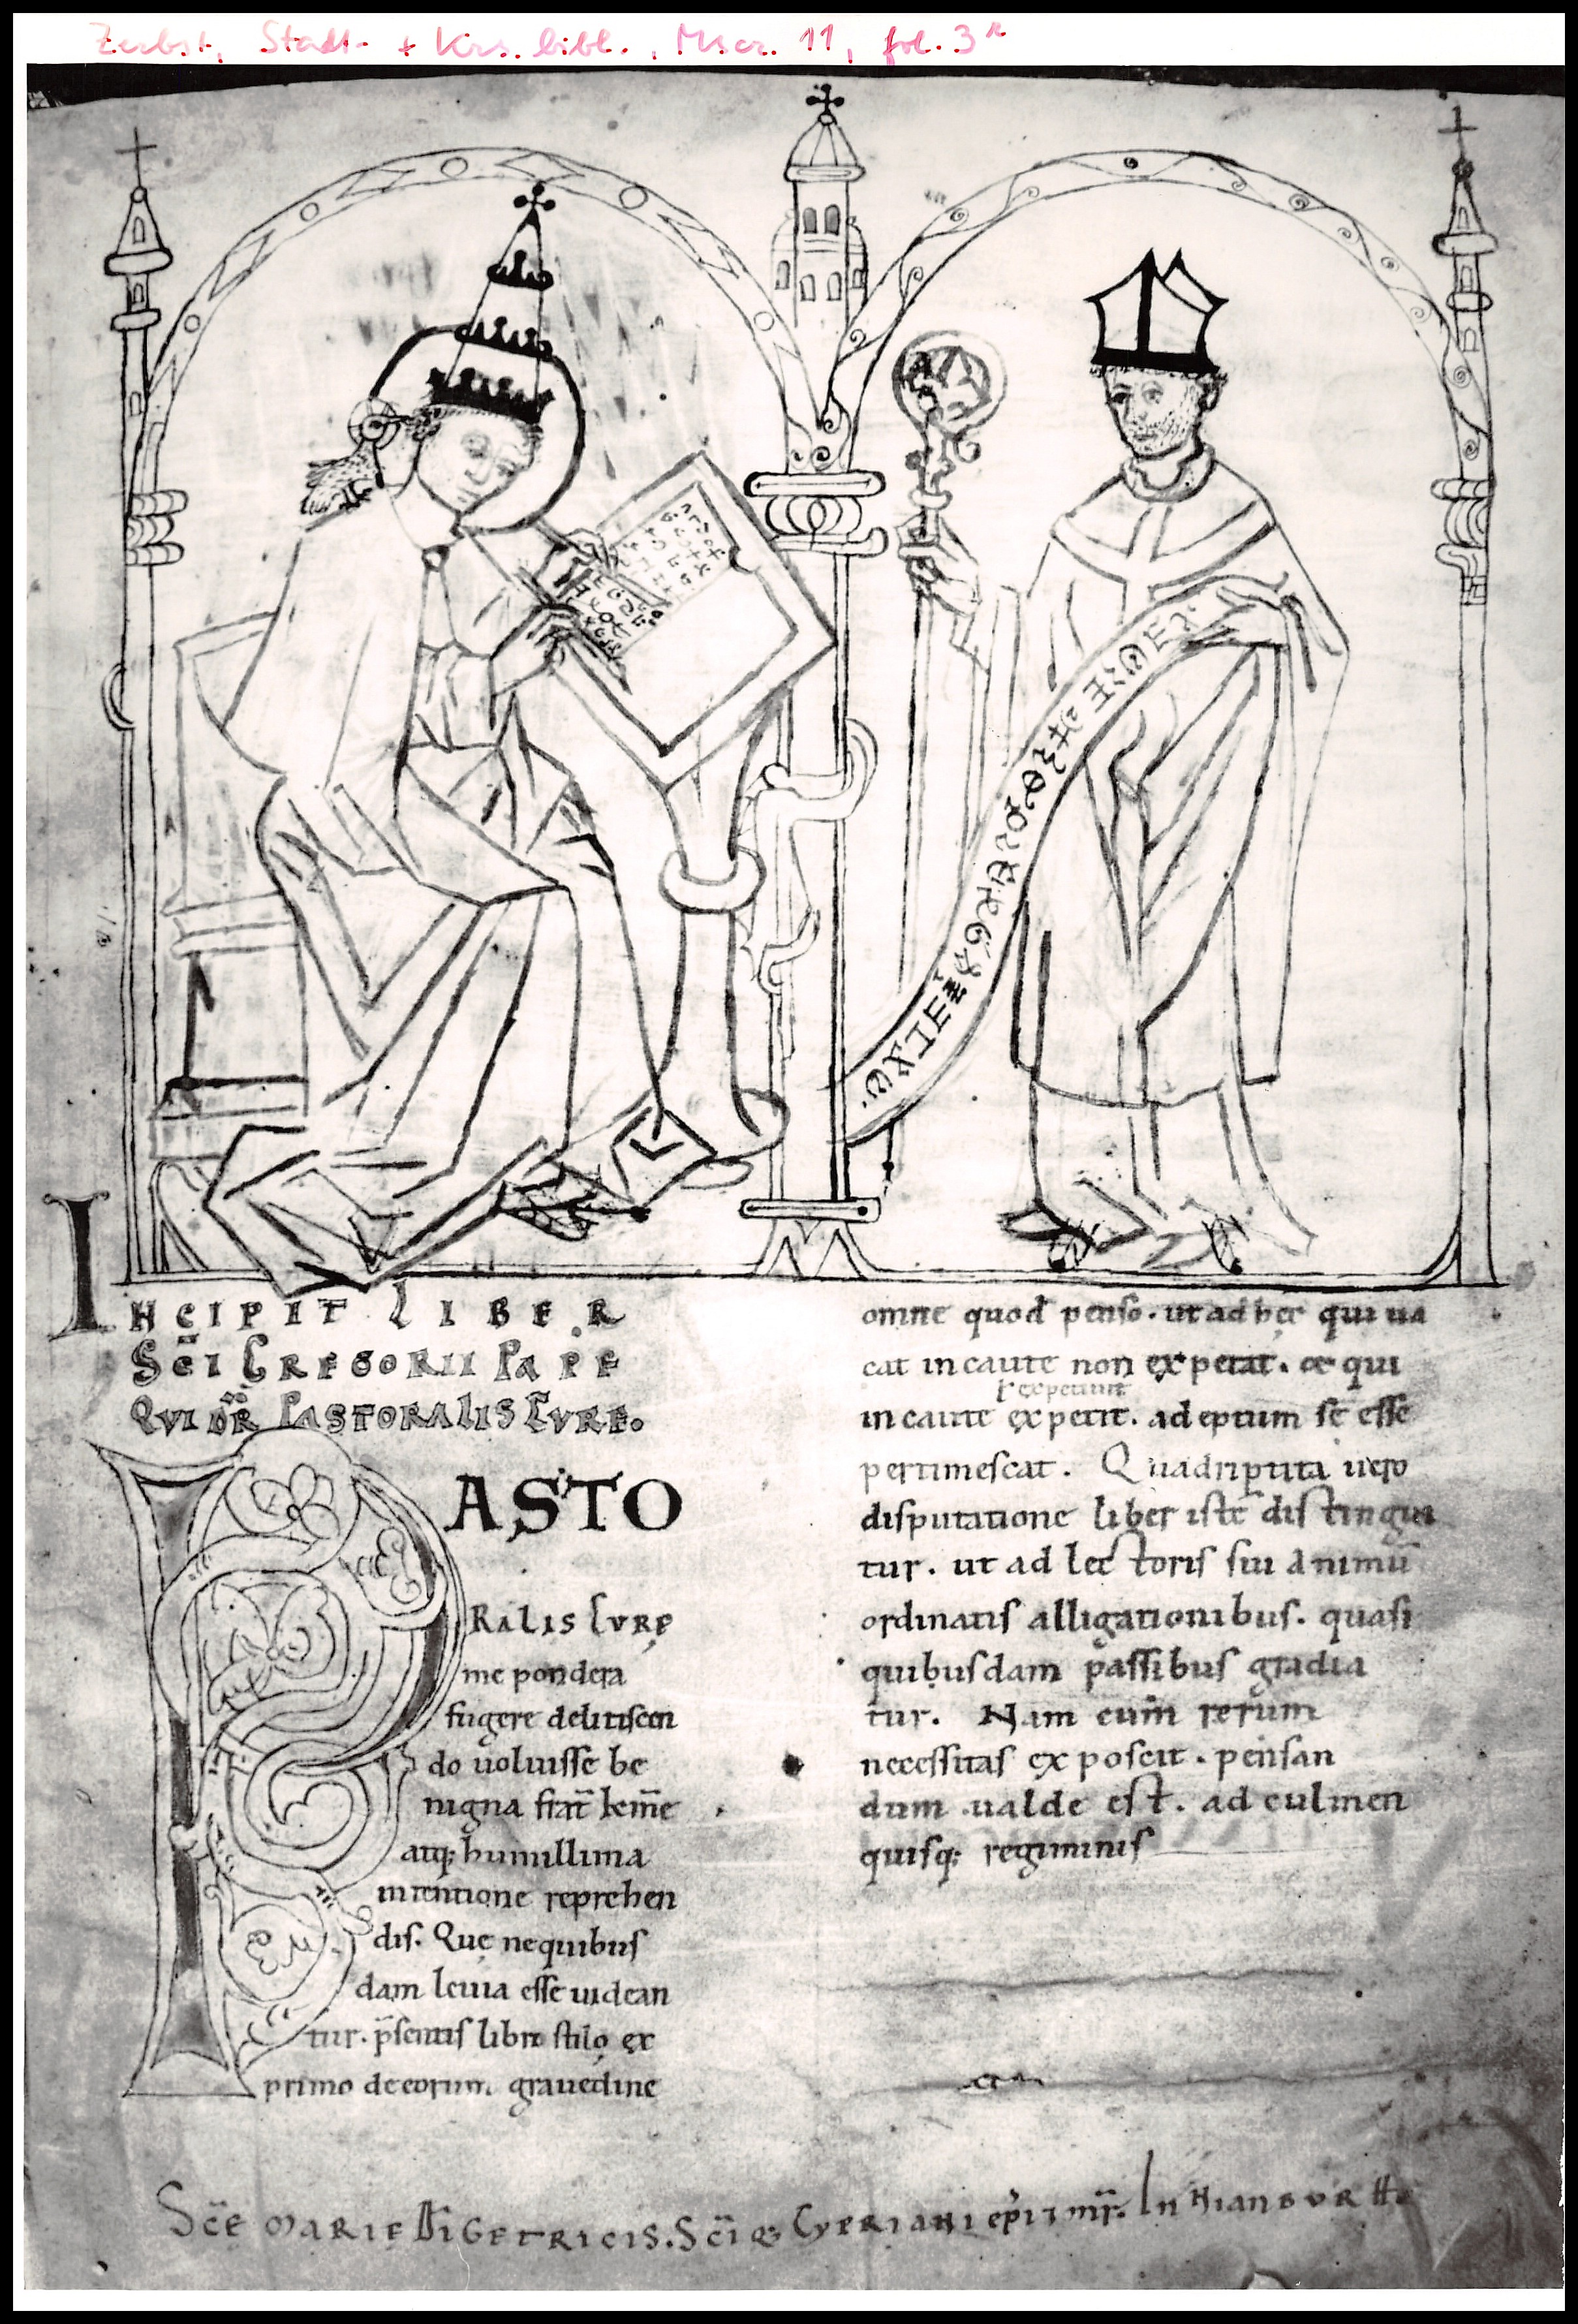 Zerbst, Stadt- + Krs. bibl., Mscr. 11, fol. 3r
INCIPIT LIBER
SC̄I GREGORII PAPE
QVI DR̄ PASTORALIS CVRE.
PASTO
RALIS CVRĘ
me pondera
fugere delitiscen
do uoluisse be
nigna frat̄ km̄e
atq; humillima
intentione reprehen
dis. Quę ne quibus
dam leuia esse uidean
tur. p̄sentis libri stilo ex
primo de eorum grauedine
omne quod penso. ut ad hęc qui ua
cat incaute non expetat. & qui
expetiuit
incaute expetit. adeptum se esse
pertimescat. Quadripertita uero
disputatione liber iste distingui
tur. ut ad lectoris sui animū
ordinatis alligationibus. quasi
quibusdam passibus gradia
tur. Nam cum rerum
necessitas exposcit. pensan
dum ualde est. ad culmen
quisq; regiminis
SC̄E MARIE DĪ GETRICIS. SC̄I Q; CYPRIANI ep̄i 7 mr̄. In